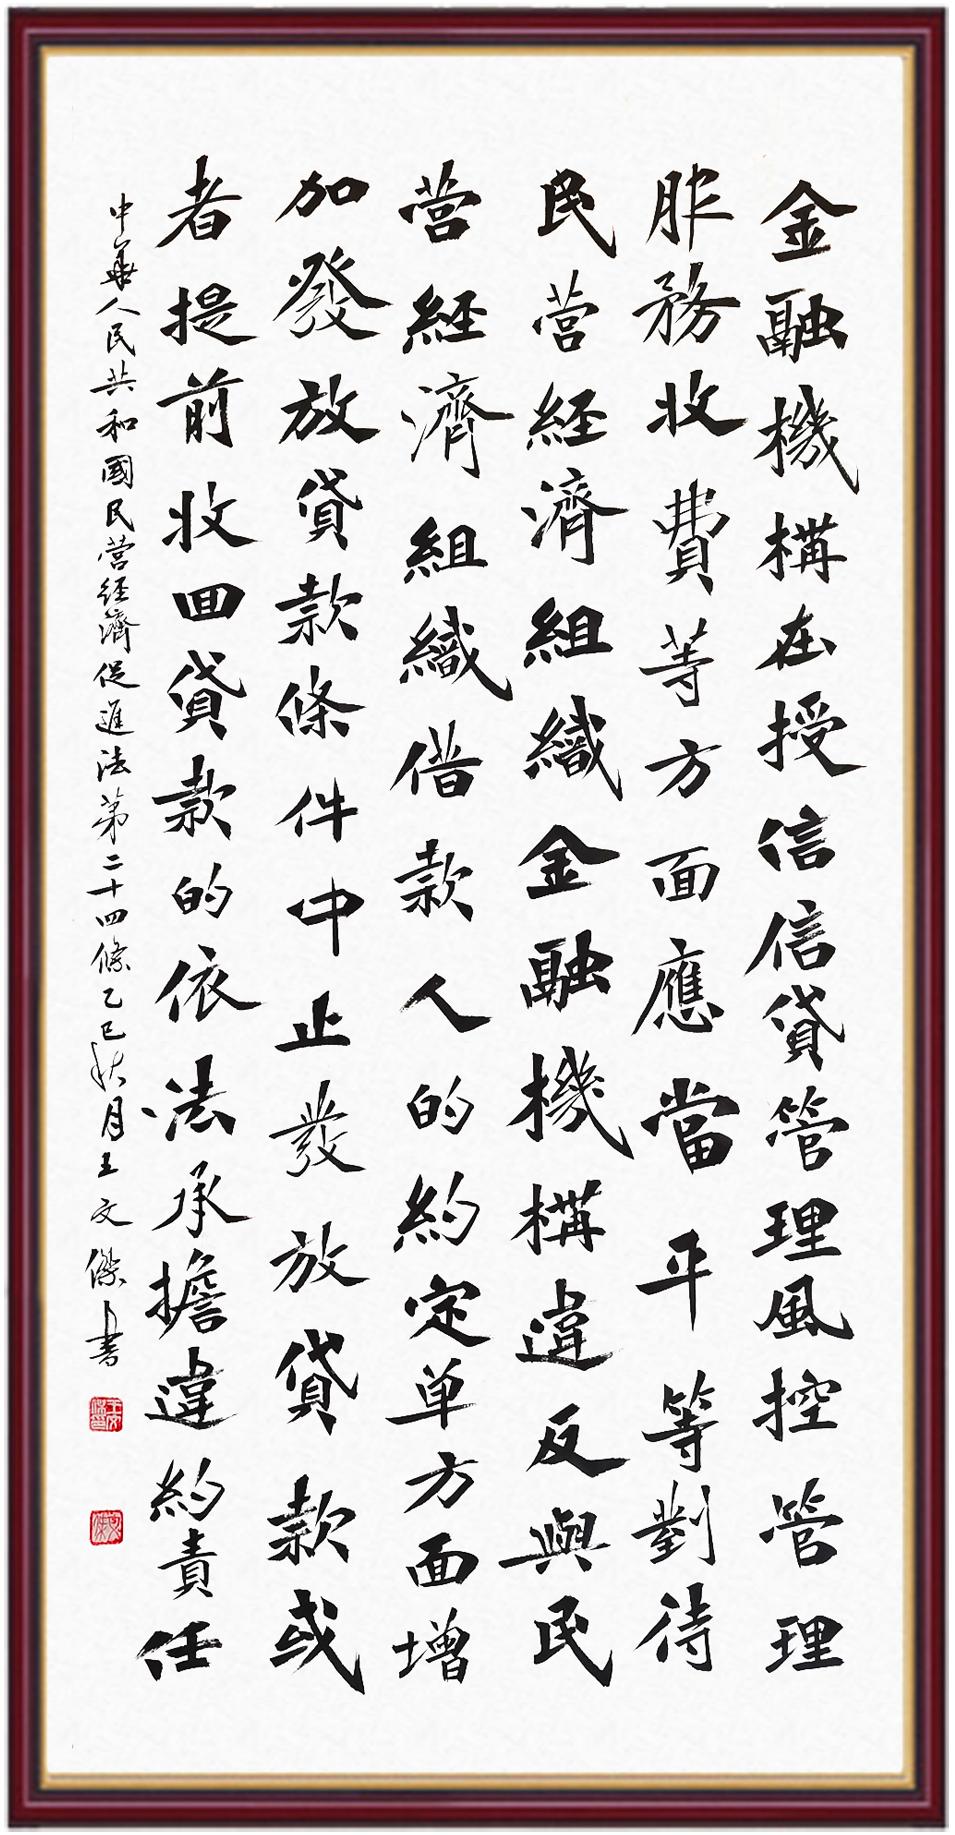 金融機構在授信信貸管理風控管理
服務收費等方面應當平等對待
民营経濟組織金融機構違反與民
营経濟組織借款人的約定单方面增
加發放貸款條件中止發放貸款或
者提前收回貸款的依法承擔違約責任
中華人民共和國民营経濟促進法第二十四條乙巳秋月王文傑書